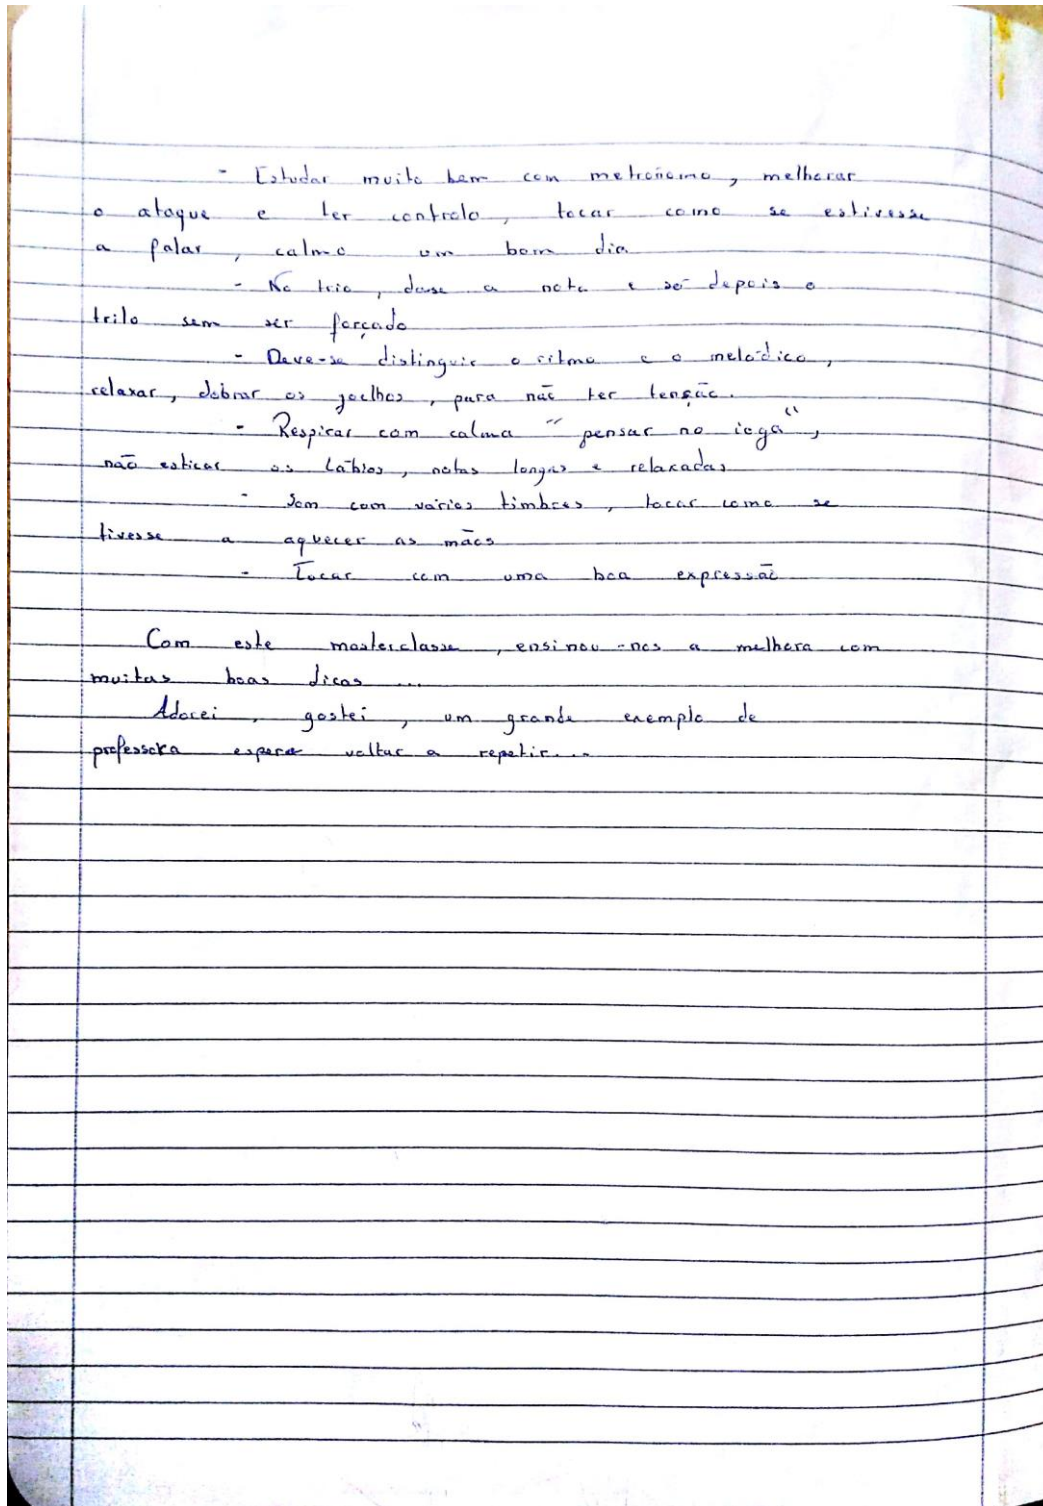 - Estudar muito bem com metrońomo, melhorar
o ataque e ter controlo, tocar como se estivesse
a falar, calmo um bom dia
- No trio, da-se a nota e só depois o
trilo sem ser forçado
- Deve-se distinguir o ritmo e o melódico,
relaxar, dobrar os joelhos, para não ter tensão.
- Respirar com calma " pensar no ioga ",
não esticar os lábios, notas longas e relaxadas
- Som com vários timbres, tocar como se
tivesse a aquecer as mãos
- Tocar com uma boa expressão
Com este masterclasse, ensinou-nos a melhora com
muitas boas dicas ...
Adorei, gostei, um grande exemplo de
professora espero voltar a repetir...